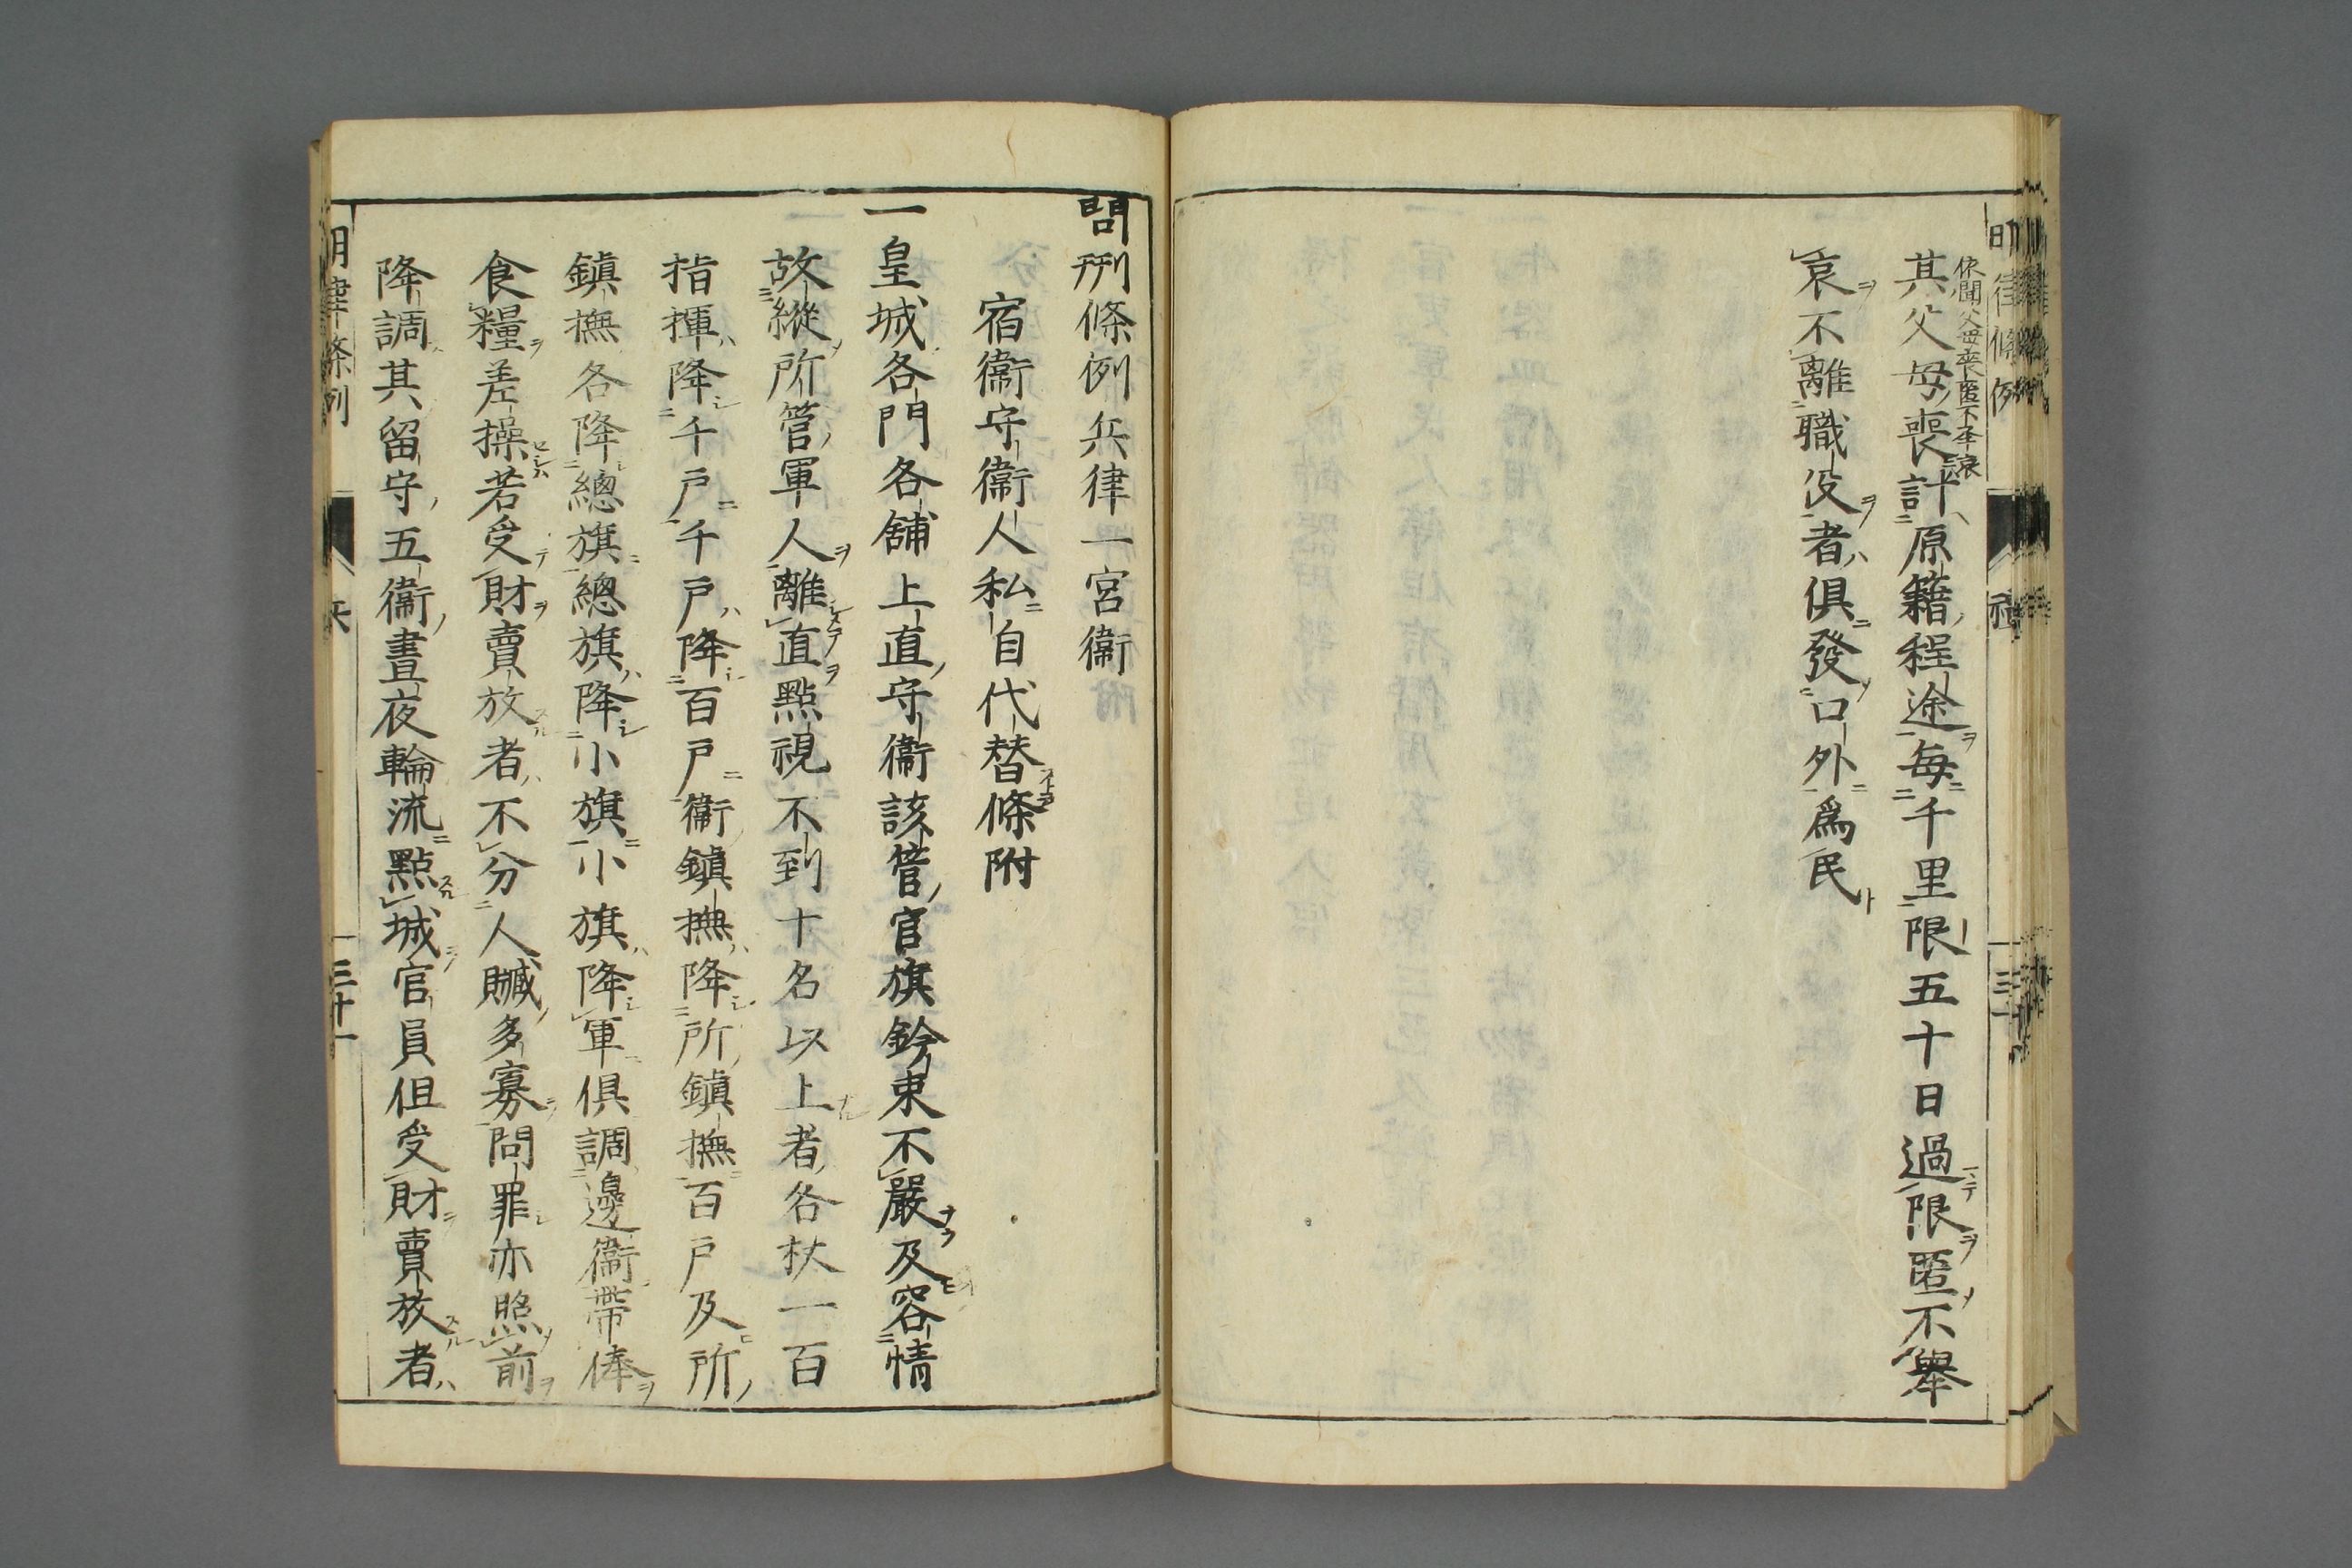 其父母喪計原籍程途每千里限五十日過限匿不舉
哀不離職役者俱發口外爲民
問刑條例兵律一宮衞
宿衞守衞人私自代替條附
一皇城各門各舖上直守衞該管官旗鈐束不嚴及容情
故縱所管軍人離直點視不到十名以上者各杖一百
指揮降千戶千戶降百戶衞鎮撫降所鎮撫百戶及所
鎮撫各降總旗總旗降小旗小旗降軍俱調邊衞帶俸
食糧差操若受財賣放者不分人贓多寡問罪亦照前
降調其留守五衞晝夜輪流點城官員但受財賣放者
明律條例
三十一